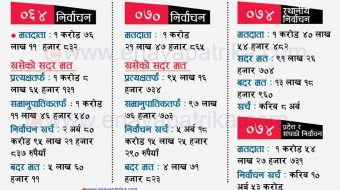 ०६४ निर्वाचन
मतदाता : १ करोड ७६
लाख ११ हजार ८३२
खसेको सदर मत
प्रत्यक्षतर्फ : १ करोड ८
लाख ६५ हजार १३१
समानुपातिकतर्फ : १ करोड
११ लाख ४६ हजार ५४०
निर्वाचन खर्च : २ अर्ब ८०
करोड ९५ लाख २१ हजार
८३७ रुपैयाँ
बदर मत : ५ लाख ६०
हजार
०७० निर्वाचन
मतदाता : १ करोड
२१ लाख ४७ हजार ८६५
खसेको सदर मत
प्रत्यक्षतर्फ : ९५ लाख १६
हजार ७३४
समानुपातिकतर्फ : ९४
लाख ६३ हजार ८६२
निर्वाचन खर्च : ४ अर्ब ५८
करोड १५ लाख २५ हजार
२९० रुपैयाँ
बदर मत : ४ लाख ७१
हजार ८२३
०७४ स्थानीय
निर्वाचन
मतदाता : १ करोड ४० लाख
५४ हजार ४८२
सदर मत : ९९ लाख २६
हजार ७०४
बदर मत : १३ लाख २८
हजार ९६०
खर्च : करिब ८ अर्ब
०७४ प्रदेश र
संघको निर्वाचन
मतदाता : १ करोड ५४
लाख २७ हजार ७३१
खर्च : करिब १०
अर्ब ५३ करोड
www.enayapatrika.com